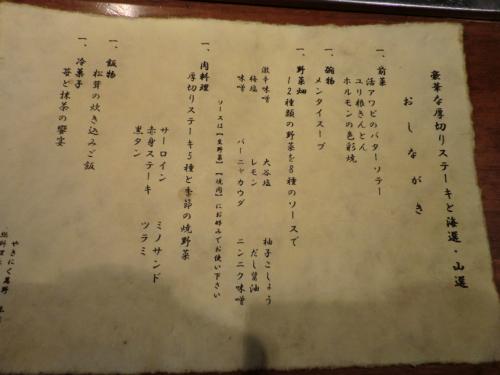 豪華な厚切りステーキと海選・山選
おしながき
一、前菜
活アワビのバターソテー
ユリ根きんとん
ホルモンの色彩焼
一、椀物
メンタイスープ
一、野菜畑
12種類の野菜を8種のソースで
激辛味噌 大谷塩 柚子こしょう
梅塩 レモン だし醤油
味噌 バーニャカウダ ニンニク味噌
ソースは【生野菜】【焼肉】にお好みでお使い下さい
一、肉料理
厚切りステーキ5種と季節の焼野菜
サーロイン ミノサンド
赤身ステーキ ツラミ
黒タン
一、飯物
松茸の炊き込みご飯
一、冷菓子
苺と抹茶の饗宴
やきにく
総料理